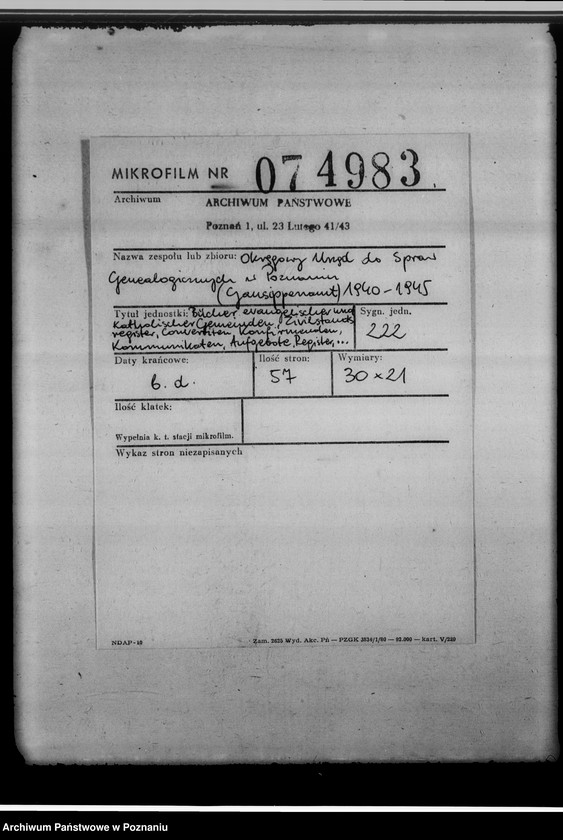 MIKROFILM NR 074983
Archiwum ARCHIWUM PAŃSTWOWE
Poznań 1, ul. 23 Lutego 41/43
Nazwa zespołu lub zbioru: Okręgowy Urząd do Spraw
Genealogicznych w Poznaniu
(Gausippenamt) 1940-1945
Tytuł jednostki: Bücher evangelischer und
Katholischer Gemeinden, Civilstands
register, Convertiten, Konfirmenden,
Kommunikaten, Aufgebote, Register, ...
Sygn. jedn.
222
Daty krańcowe:
b. d.
Ilość stron:
57
Wymiary:
30 x 21
Ilość klatek:
Wypełnia k. t. stacji mikrofilm.
Wykaz stron niezapisanych
NDAP-10
Zam. 2625 Wyd. Akc. Pń — PZGK 2834/1/80 — 82.000 — kart. V/220
Archiwum Państwowe w Poznaniu